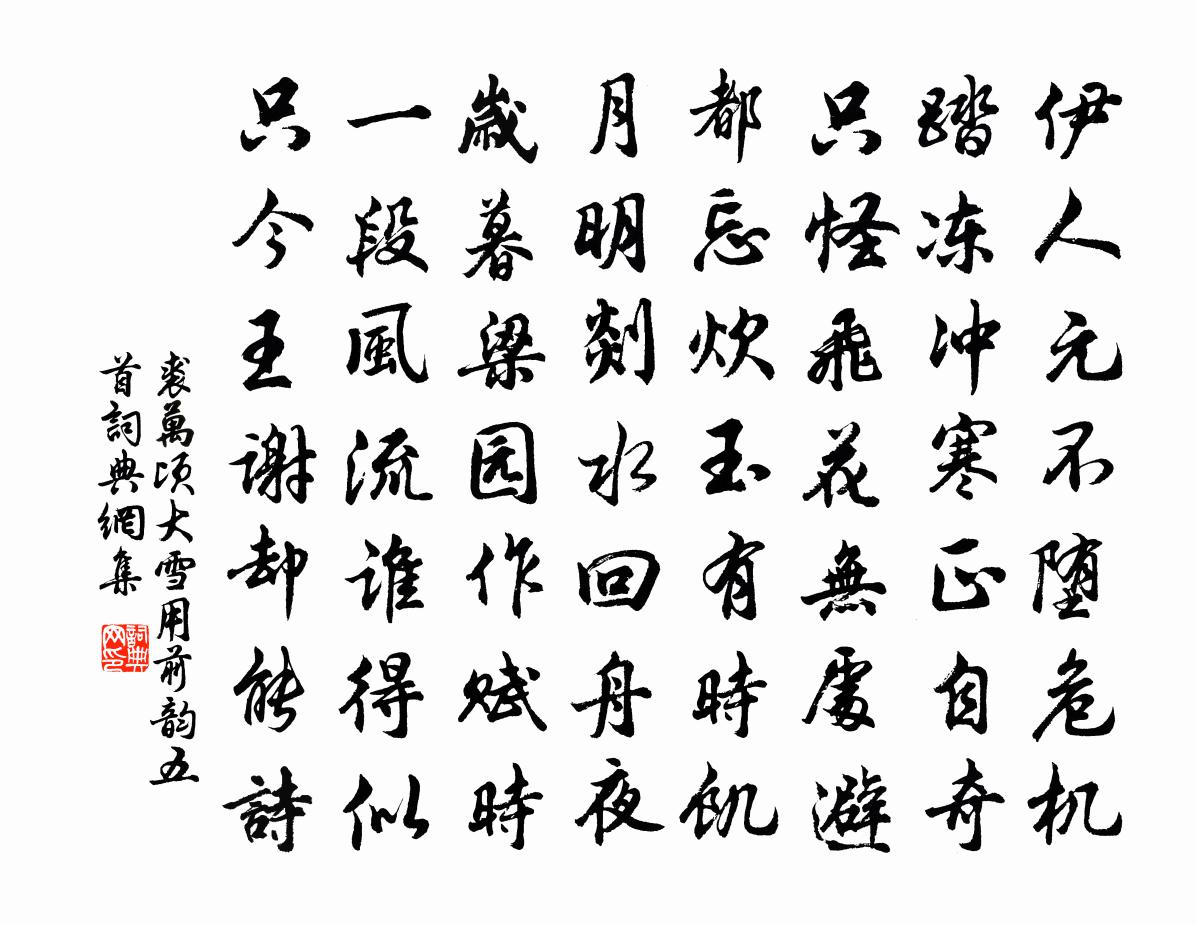 伊人元不堕危机
踏冻冲寒正自奇
只怪飛花無處避
都忘炊玉有時飢
月明剡水回舟夜
歲暮梁园作赋時
一段風流誰得似
只今王謝却能詩
裘萬頃大雪用前韵五
首詞典網集
詞典
网印